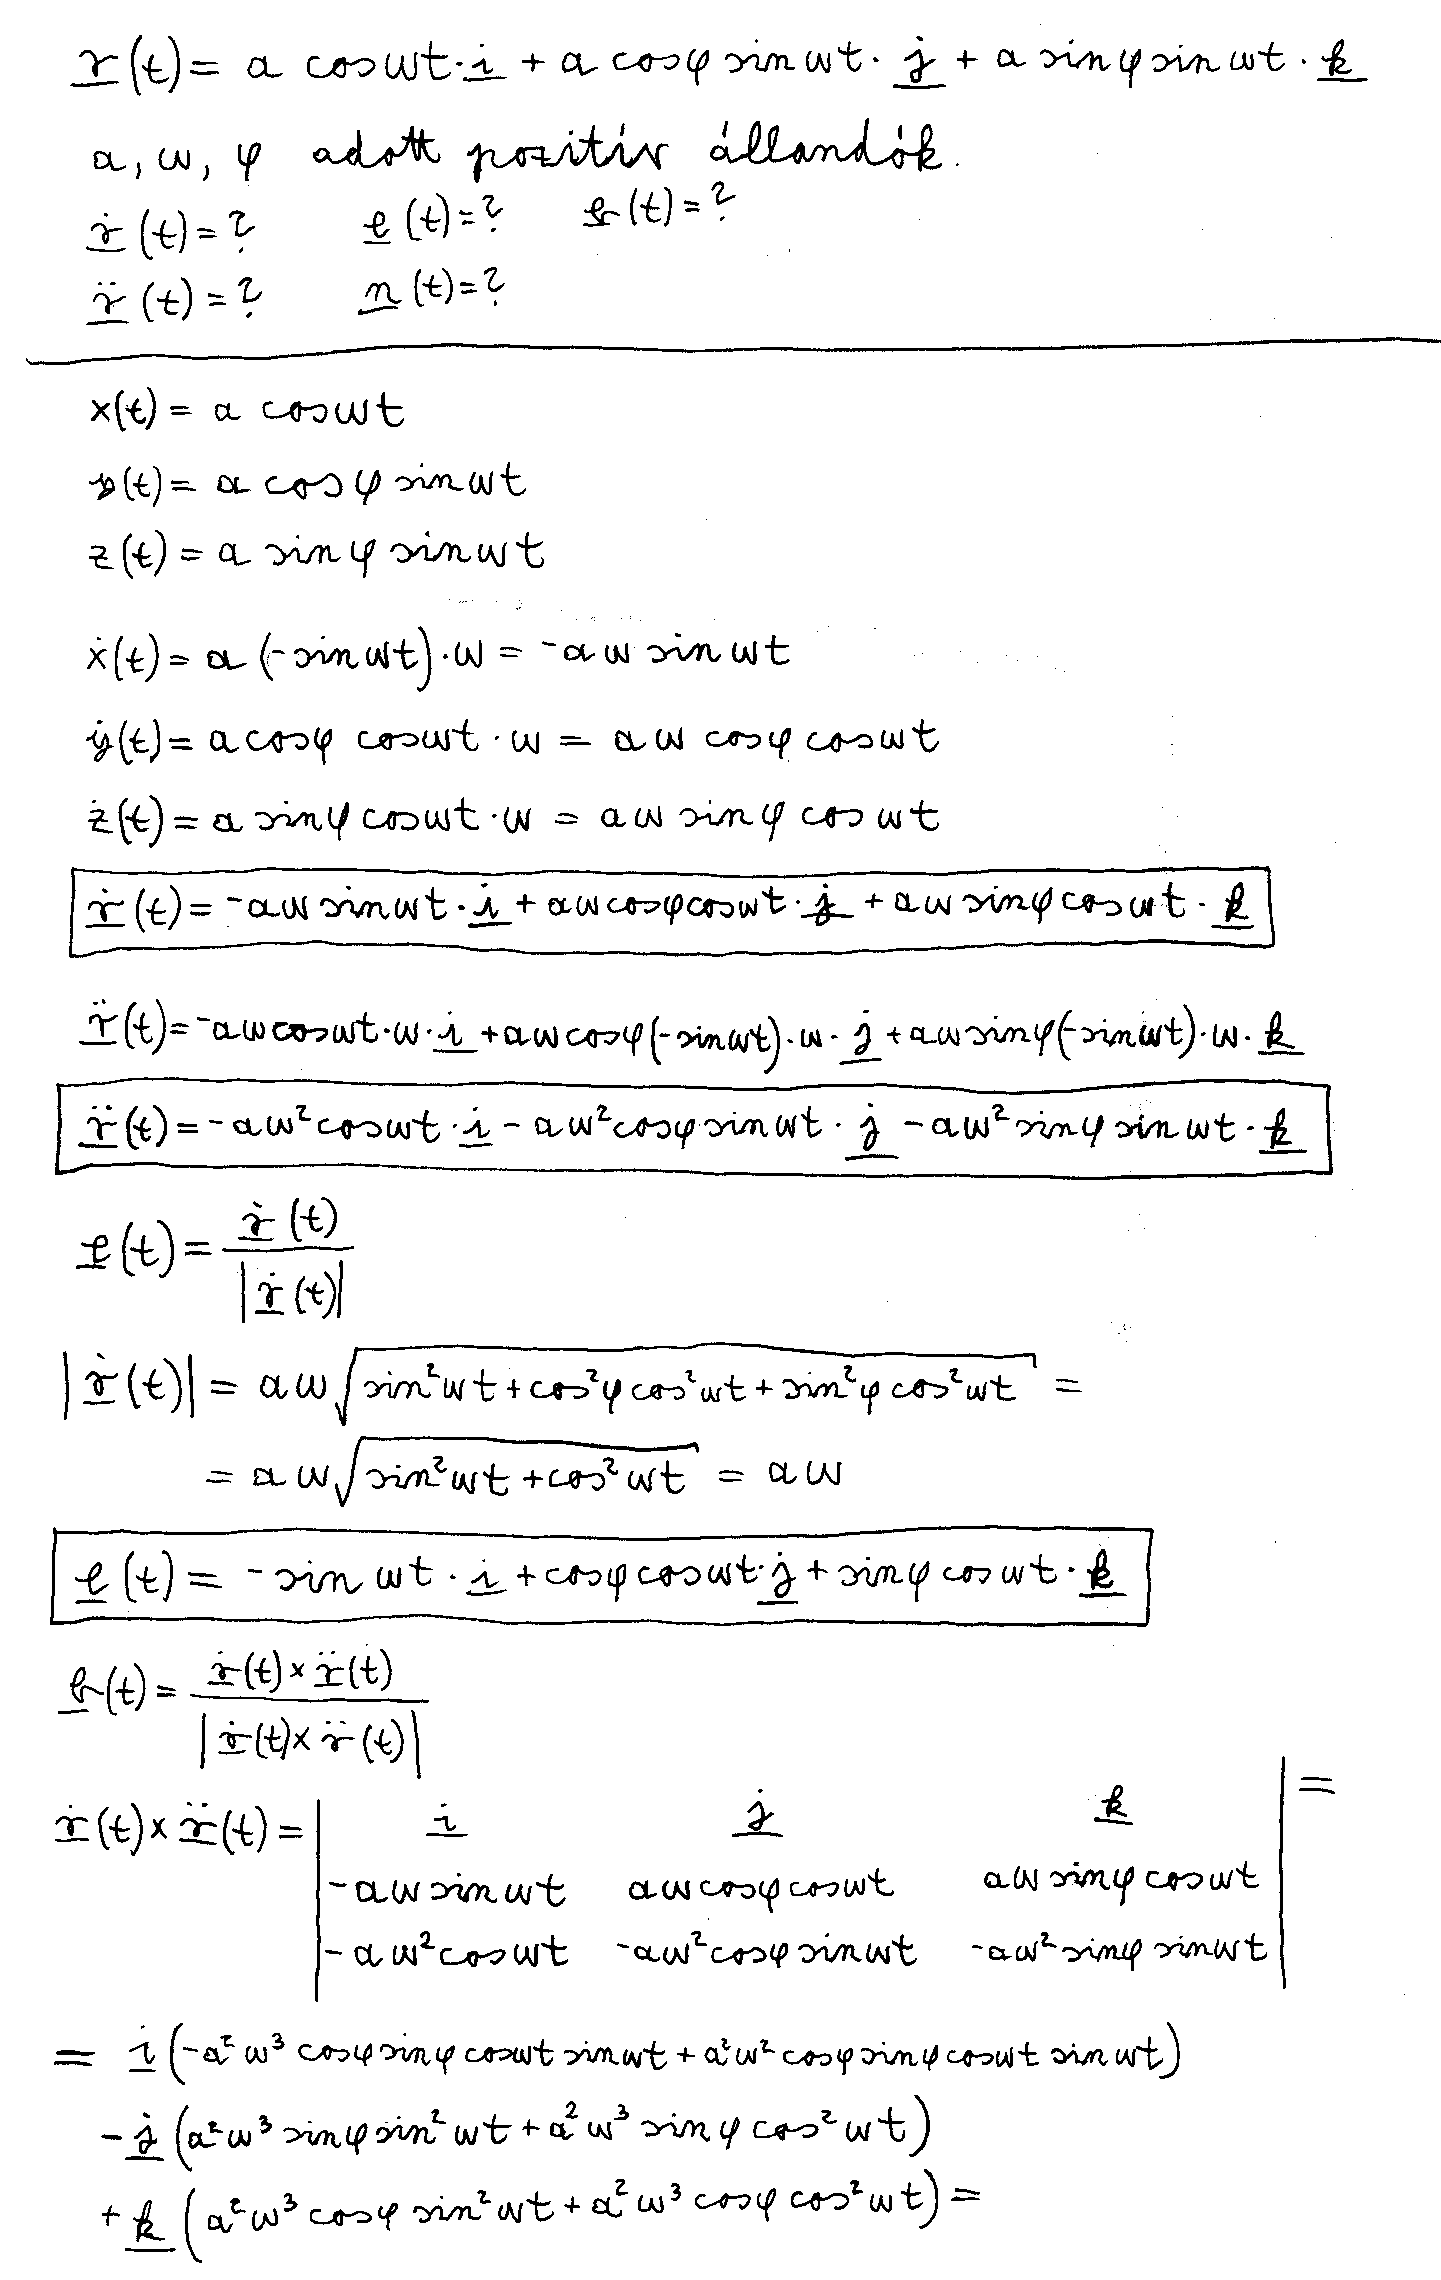 r(t) = a cosωt·i + a cosφ sinωt·j + a sinφ sinωt·k
a, ω, φ adott pozitív állandók.
ṙ(t)=? e(t)=? b(t)=?
r̈(t)=? n(t)=?
x(t) = a cosωt
y(t) = a cosφ sinωt
z(t) = a sinφ sinωt
ẋ(t) = a(-sinωt)·ω = -aω sinωt
ẏ(t) = a cosφ cosωt·ω = aω cosφ cosωt
ż(t) = a sinφ cosωt·ω = aω sinφ cosωt
ṙ(t) = -aω sinωt·i + aω cosφ cosωt·j + aω sinφ cosωt·k
r̈(t) = -aω cosωt·ω·i + aω cosφ(-sinωt)·ω·j + aω sinφ(-sinωt)·ω·k
r̈(t) = -aω² cosωt·i - aω² cosφ sinωt·j - aω² sinφ sinωt·k
e(t) = ṙ(t) / |ṙ(t)|
|ṙ(t)| = aω √(sin²ωt + cos²φ cos²ωt + sin²φ cos²ωt) =
= aω √(sin²ωt + cos²ωt) = aω
e(t) = -sinωt·i + cosφ cosωt·j + sinφ cosωt·k
b(t) = ṙ(t)×r̈(t) / |ṙ(t)×r̈(t)|
ṙ(t)×r̈(t) = | i j k | =
| -aω sinωt aω cosφ cosωt aω sinφ cosωt |
| -aω² cosωt -aω² cosφ sinωt -aω² sinφ sinωt |
= i(-a²ω³ cosφ sinφ cosωt sinωt + a²ω² cosφ sinφ cosωt sinωt)
-j(a²ω³ sinφ sin²ωt + a²ω³ sinφ cos²ωt)
+k(a²ω³ cosφ sin²ωt + a²ω³ cosφ cos²ωt) =